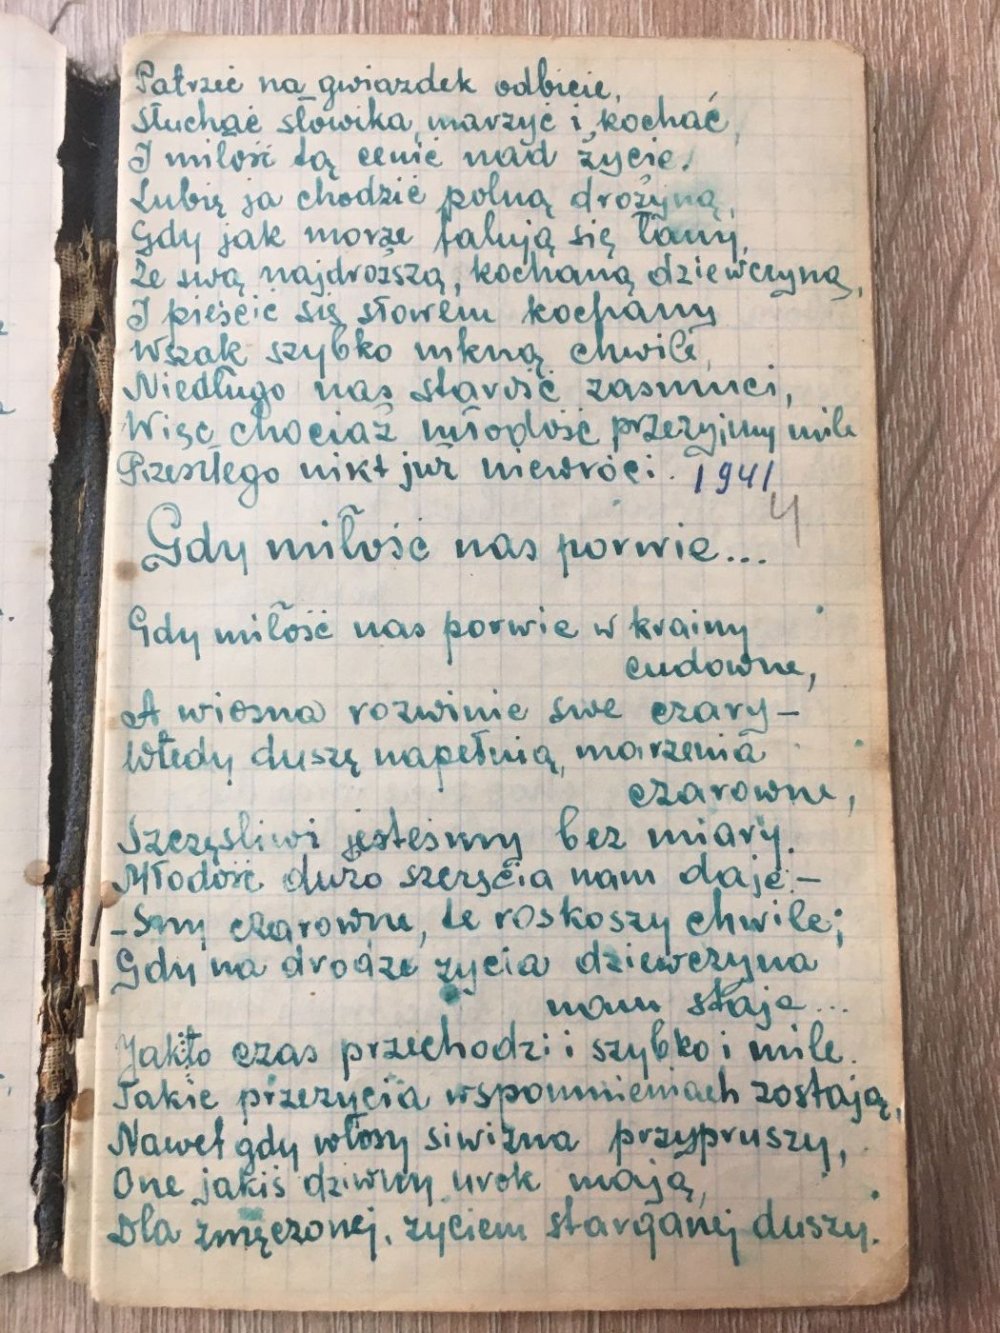 Patrzeć na gwiazdek odbicie,
Słuchać słowika, marzyć i kochać
I miłość tą cenić nad życie.
Lubię ja chodzić polną drożyną,
Gdy jak morze falują się łany,
Ze swą najdroższą, kochaną dziewczyną,
I pieścić się słowem kochany
Wszak szybko mkną chwile,
Niedługo nas starość zasmuci,
Więc chociaż młodość przeżyjmy mile
Przeszłego nikt już niewróci. 1941
4
Gdy miłość nas porwie...
Gdy miłość nas porwie w krainy
cudowne,
A wiosna rozwinie swe czary-
Wtedy duszę napełnią, marzenia
czarowne,
Szczęsliwi jesteśmy bez miary.
Młodość dużo szczęścia nam daje.-
-Sny czarowne, te roskoszy chwile;
Gdy na drodze życia dziewczyna
nam staje...
Jakto czas przechodzi i szybko i mile.
Takie przezycia wspomnieniach zostają,
Nawet gdy włosy siwizna przypruszy,
One jakiś dziwny urok mają,
Dla zmęczonej, życiem starganej duszy.